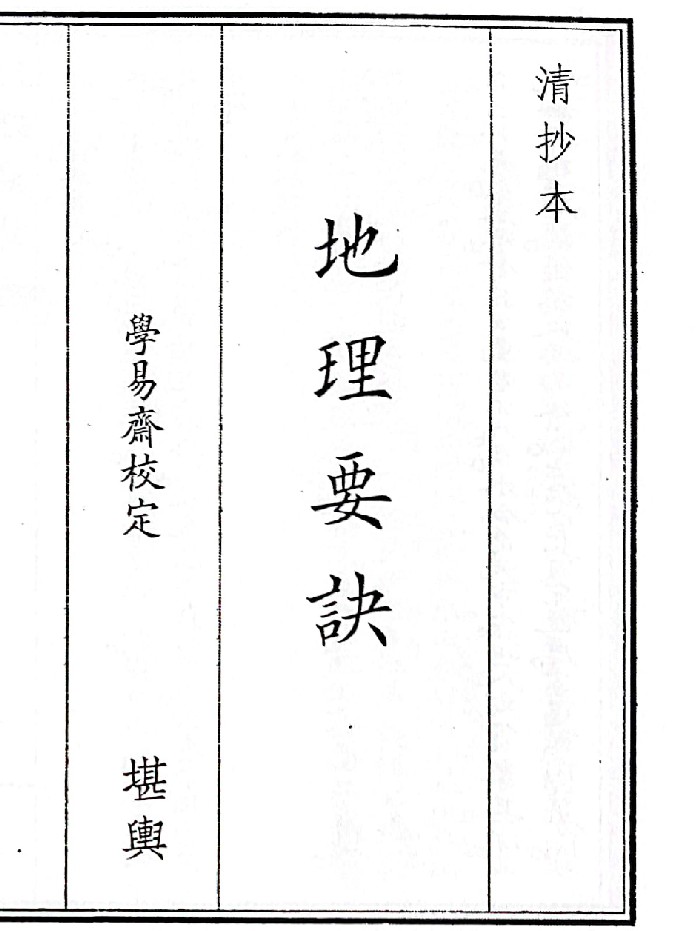 清抄本
地理要訣
學易齋校定
堪輿